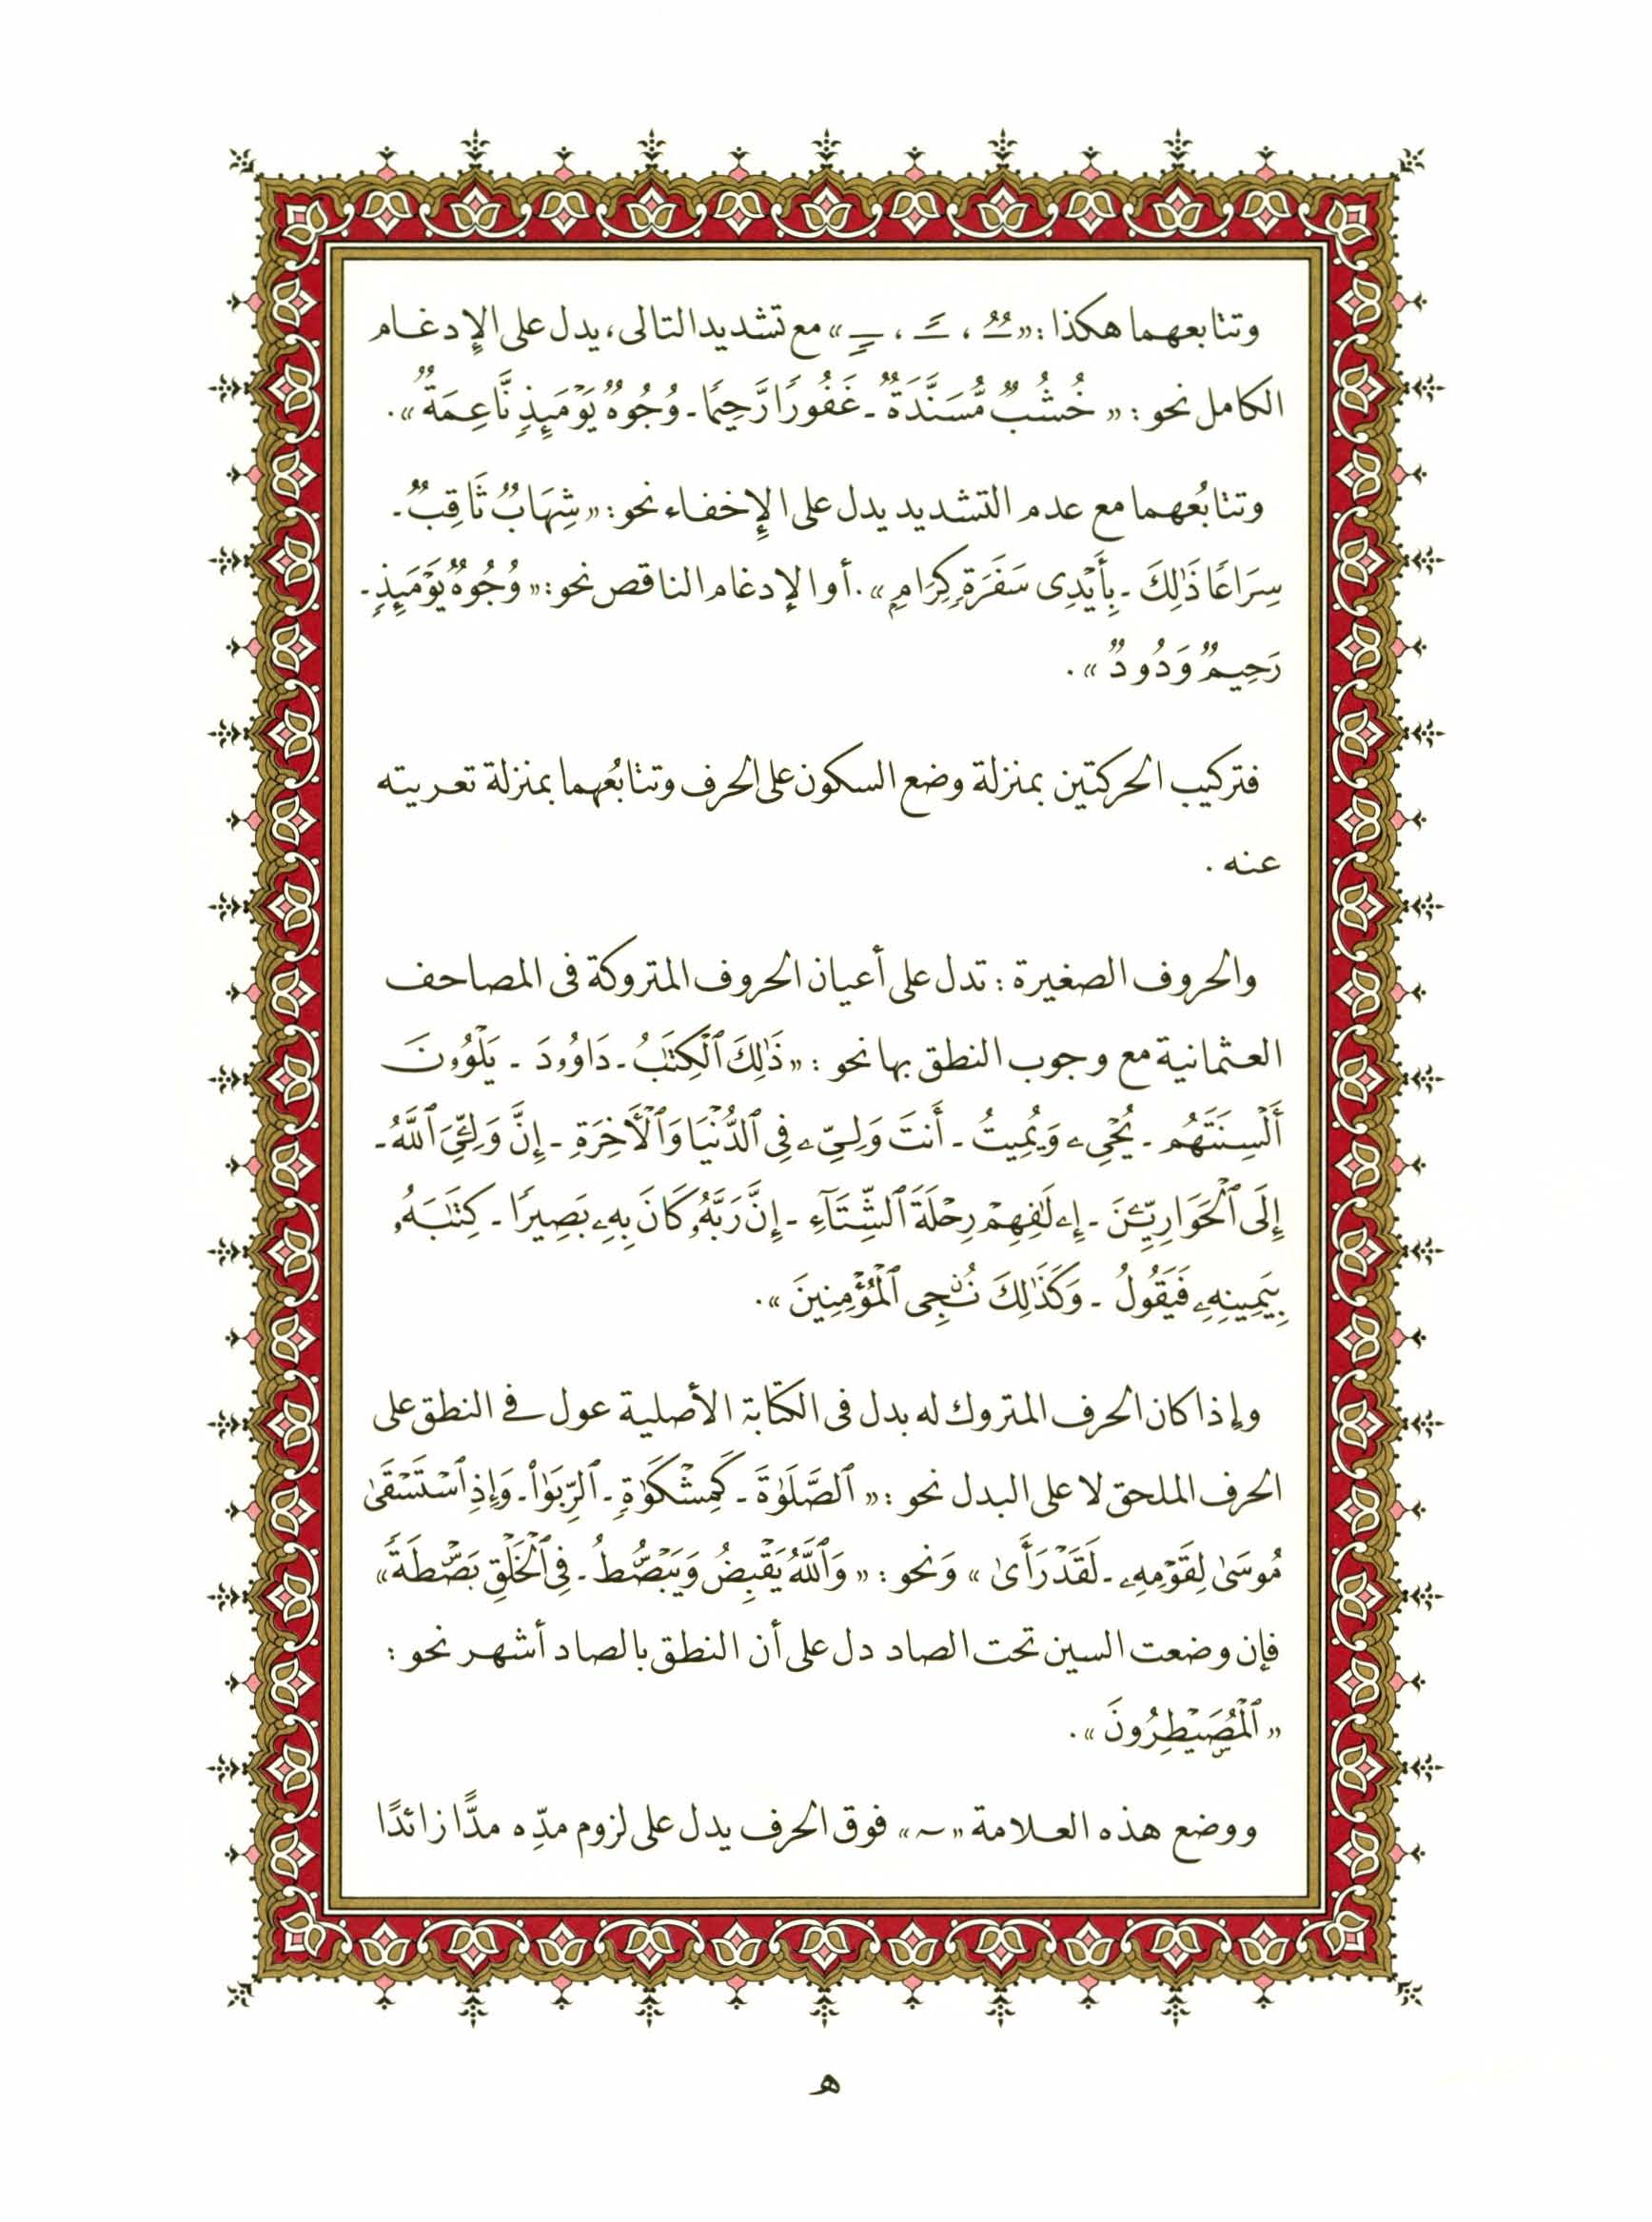 وتتابعهما هكذا : « ـٌ ، ـً ، ـٍ » مع تشديد التالى، يدل على الإدغام
الكامل نحو : « خُشُبٌ مُّسَنَّدَةٌ ـ غَفُورًا رَّحِيمًا ـ وُجُوهٌ يَوْمَئِذٍ نَّاعِمَةٌ » .
وتتابُعهما مع عدم التشديد يدل على الإخفاء نحو : « شِهَابٌ ثَاقِبٌ ـ
سِرَاعًا ذَٰلِكَ ـ بِأَيْدِى سَفَرَةٍ كِرَامٍ » . أو الإدغام الناقص نحو : « وُجُوهٌ يَوْمَئِذٍ ـ
رَحِيمٌ وَدُودٌ » .
فتركيب الحركتين بمنزلة وضع السكون على الحرف وتتابُعهما بمنزلة تعريته
عنه .
والحروف الصغيرة : تدل على أعيان الحروف المتروكة فى المصاحف
العثمانية مع وجوب النطق بها نحو : « ذَٰلِكَ ٱلْكِتَٰبُ ـ دَاوُۥدَ ـ يَلْوُۥنَ
أَلْسِنَتَهُم ـ يُحْىِۦ وَيُمِيتُ ـ أَنتَ وَلِىِّۦ فِى ٱلدُّنْيَا وَٱلْأَخِرَةِ ـ إِنَّ وَلِـِّۧىَ ٱللَّهُ ـ
إِلَى ٱلْحَوَارِيِّۦنَ ـ إِۦلَٰفِهِمْ رِحْلَةَ ٱلشِّتَآءِ ـ إِنَّ رَبَّهُۥ كَانَ بِهِۦ بَصِيرًا ـ كِتَٰبَهُۥ
بِيَمِينِهِۦ فَيَقُولُ ـ وَكَذَٰلِكَ نُـۨجِى ٱلْمُؤْمِنِينَ » .
وإذا كان الحرف المتروك له بدل فى الكتابة الأصلية عول فى النطق على
الحرف الملحق لا على البدل نحو : « ٱلصَّلَوٰةَ ـ كَمِشْكَوٰةٍ ـ ٱلرِّبَوٰا۟ ـ وَإِذِ ٱسْتَسْقَىٰ
مُوسَىٰ لِقَوْمِهِۦ ـ لَقَدْ رَأَىٰ » وَنحو : « وَٱللَّهُ يَقْبِضُ وَيَبْصُۜطُ ـ فِى ٱلْخَلْقِ بَصْۜطَةً »
فإن وضعت السين تحت الصاد دل على أن النطق بالصاد أشهر نحو :
« ٱلْمُصَۣيْطِرُونَ » .
ووضع هذه العلامة « ~ » فوق الحرف يدل على لزوم مدّه مدًّا زائدًا
ه